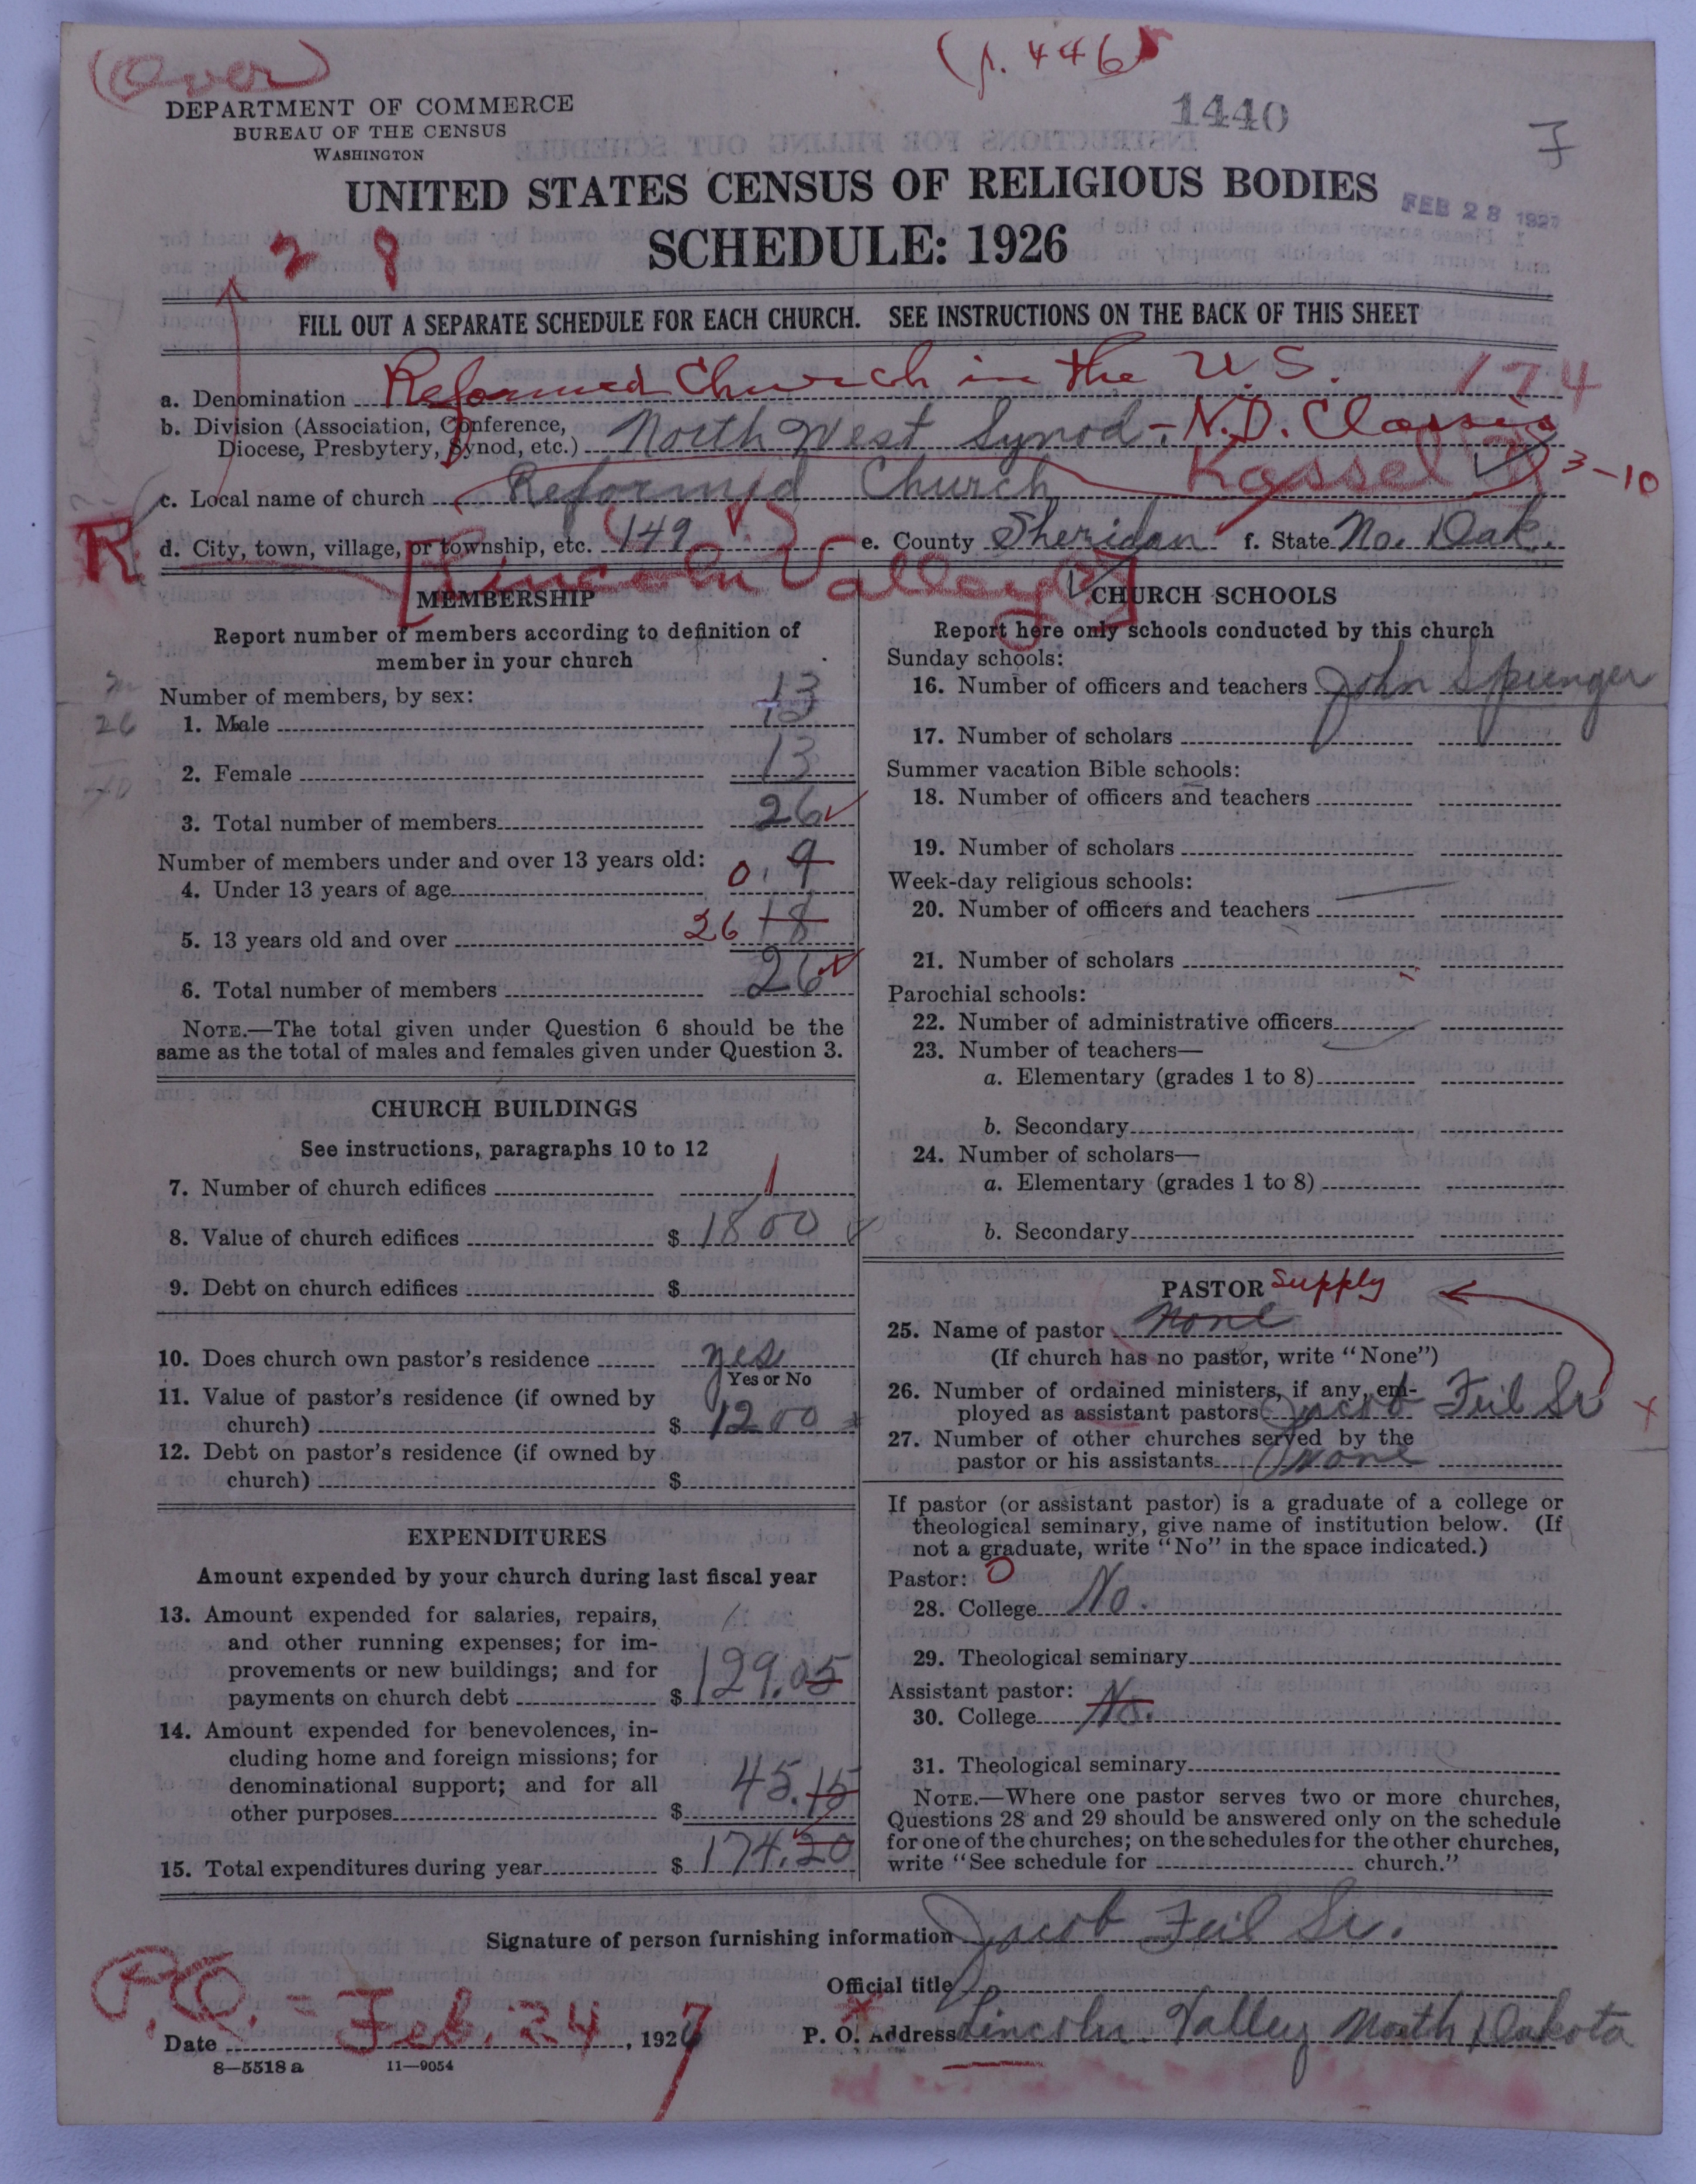 (Over)
(p. 446)
DEPARTMENT OF COMMERCE
BUREAU OF THE CENSUS
WASHINGTON
1440
UNITED STATES CENSUS OF RELIGIOUS BODIES
FEB 28 1927
SCHEDULE: 1926
2 8
FILL OUT A SEPARATE SCHEDULE FOR EACH CHURCH. SEE INSTRUCTIONS ON THE BACK OF THIS SHEET
a. Denomination Reformed Church in the U.S. 174
b. Division (Association, Conference,
Diocese, Presbytery, Synod, etc.) North West Synod - N.D. Classis
c. Local name of church Reformed Church Kassel 3-10
R d. City, town, village, or township, etc. 149 e. County Sheridan f. State No. Dak.
[Lincoln Valley(?)]
MEMBERSHIP
Report number of members according to definition of
member in your church
Number of members, by sex:
1. Male 13
26
2. Female 13
3. Total number of members 26
Number of members under and over 13 years old:
4. Under 13 years of age 0. 9
5. 13 years old and over 26 18
6. Total number of members 26
NOTE.—The total given under Question 6 should be the
same as the total of males and females given under Question 3.
CHURCH BUILDINGS
See instructions, paragraphs 10 to 12
7. Number of church edifices 1
8. Value of church edifices $ 1800
9. Debt on church edifices $
10. Does church own pastor's residence yes
Yes or No
11. Value of pastor's residence (if owned by
church) $ 1200
12. Debt on pastor's residence (if owned by
church) $
EXPENDITURES
Amount expended by your church during last fiscal year
13. Amount expended for salaries, repairs,
and other running expenses; for im-
provements or new buildings; and for
payments on church debt $ 129.05
14. Amount expended for benevolences, in-
cluding home and foreign missions; for
denominational support; and for all
other purposes $ 45.15
15. Total expenditures during year $ 174.20
CHURCH SCHOOLS
Report here only schools conducted by this church
Sunday schools:
16. Number of officers and teachers John Sprenger
17. Number of scholars
Summer vacation Bible schools:
18. Number of officers and teachers
19. Number of scholars
Week-day religious schools:
20. Number of officers and teachers
21. Number of scholars
Parochial schools:
22. Number of administrative officers
23. Number of teachers—
a. Elementary (grades 1 to 8)
b. Secondary
24. Number of scholars—
a. Elementary (grades 1 to 8)
b. Secondary
PASTOR Supply
25. Name of pastor None
(If church has no pastor, write "None")
26. Number of ordained ministers, if any, em-
ployed as assistant pastors Jacob Feil Sr
27. Number of other churches served by the
pastor or his assistants None
If pastor (or assistant pastor) is a graduate of a college or
theological seminary, give name of institution below. (If
not a graduate, write "No" in the space indicated.)
Pastor: 0
28. College No.
29. Theological seminary
Assistant pastor:
30. College No.
31. Theological seminary
NOTE.—Where one pastor serves two or more churches,
Questions 28 and 29 should be answered only on the schedule
for one of the churches; on the schedules for the other churches,
write "See schedule for church."
Signature of person furnishing information Jacob Feil Sr.
Official title
P.O. = Feb. 24
Date , 1927
P. O. Address Lincoln Valley North Dakota
8—5518 a 11—9054